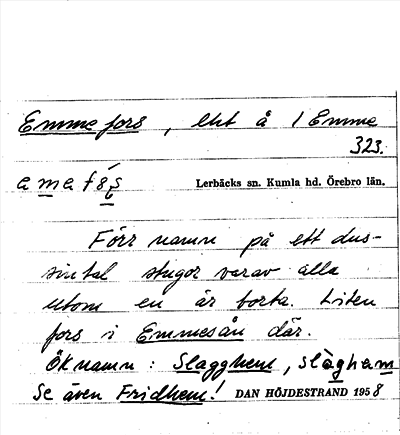 Emmefors, ekt å 1 Emme
323.
emefǒş Lerbäcks sn. Kumla hd. Örebro län.
Förr namn på ett dus-
sintal stugor varav alla
utom en är borta. Liten
fors i Emmesån där.
Öknamn: Slagghem, slàgham
Se även Fridhem! DAN HÖJDESTRAND 1958